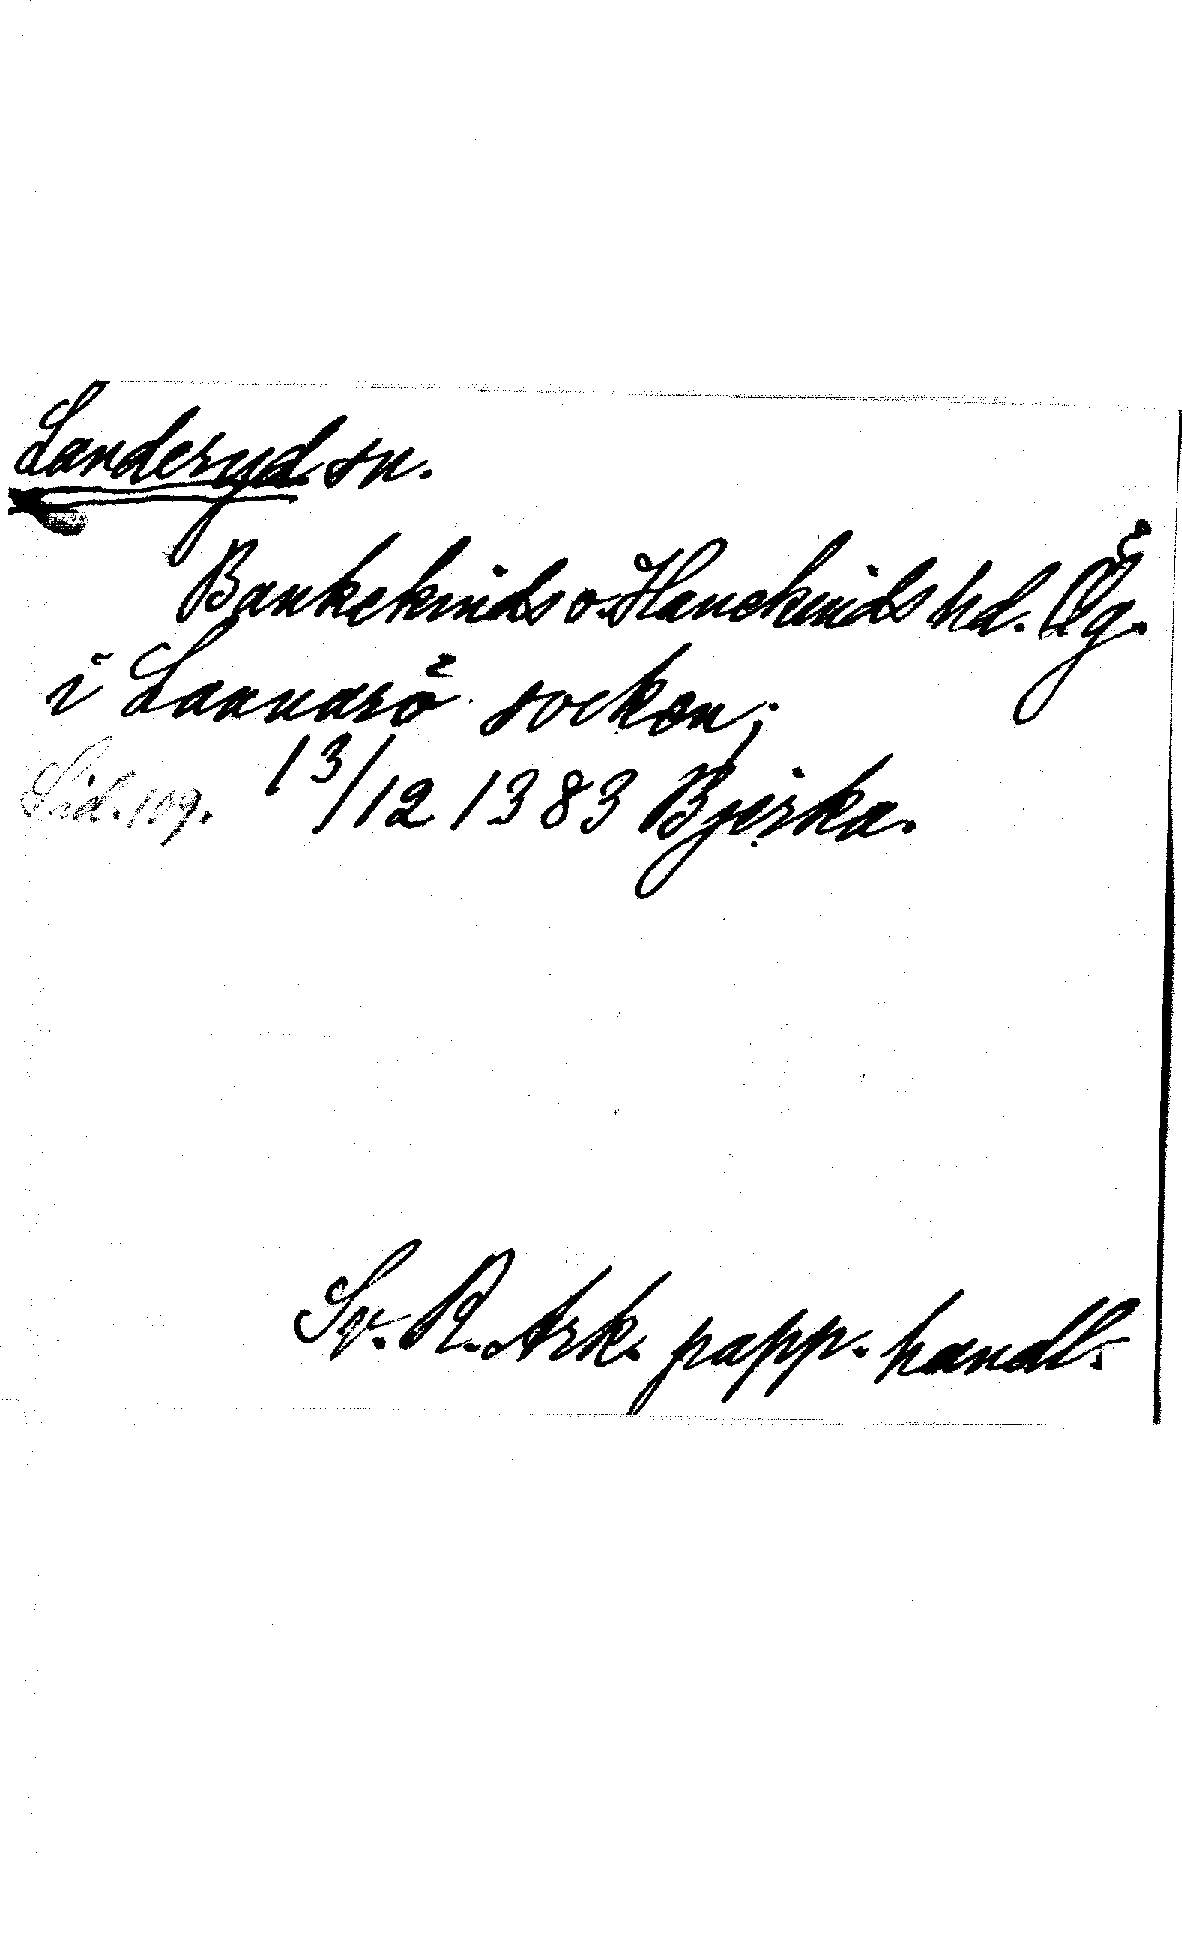 Landeryd sn.
Bankekinds o. Hanekinds hd. Ög.
i Lannarö sockæn;
Sid. 109. 13/12 1383 Bjerka.
Sv. R. Ark. papp. handl.